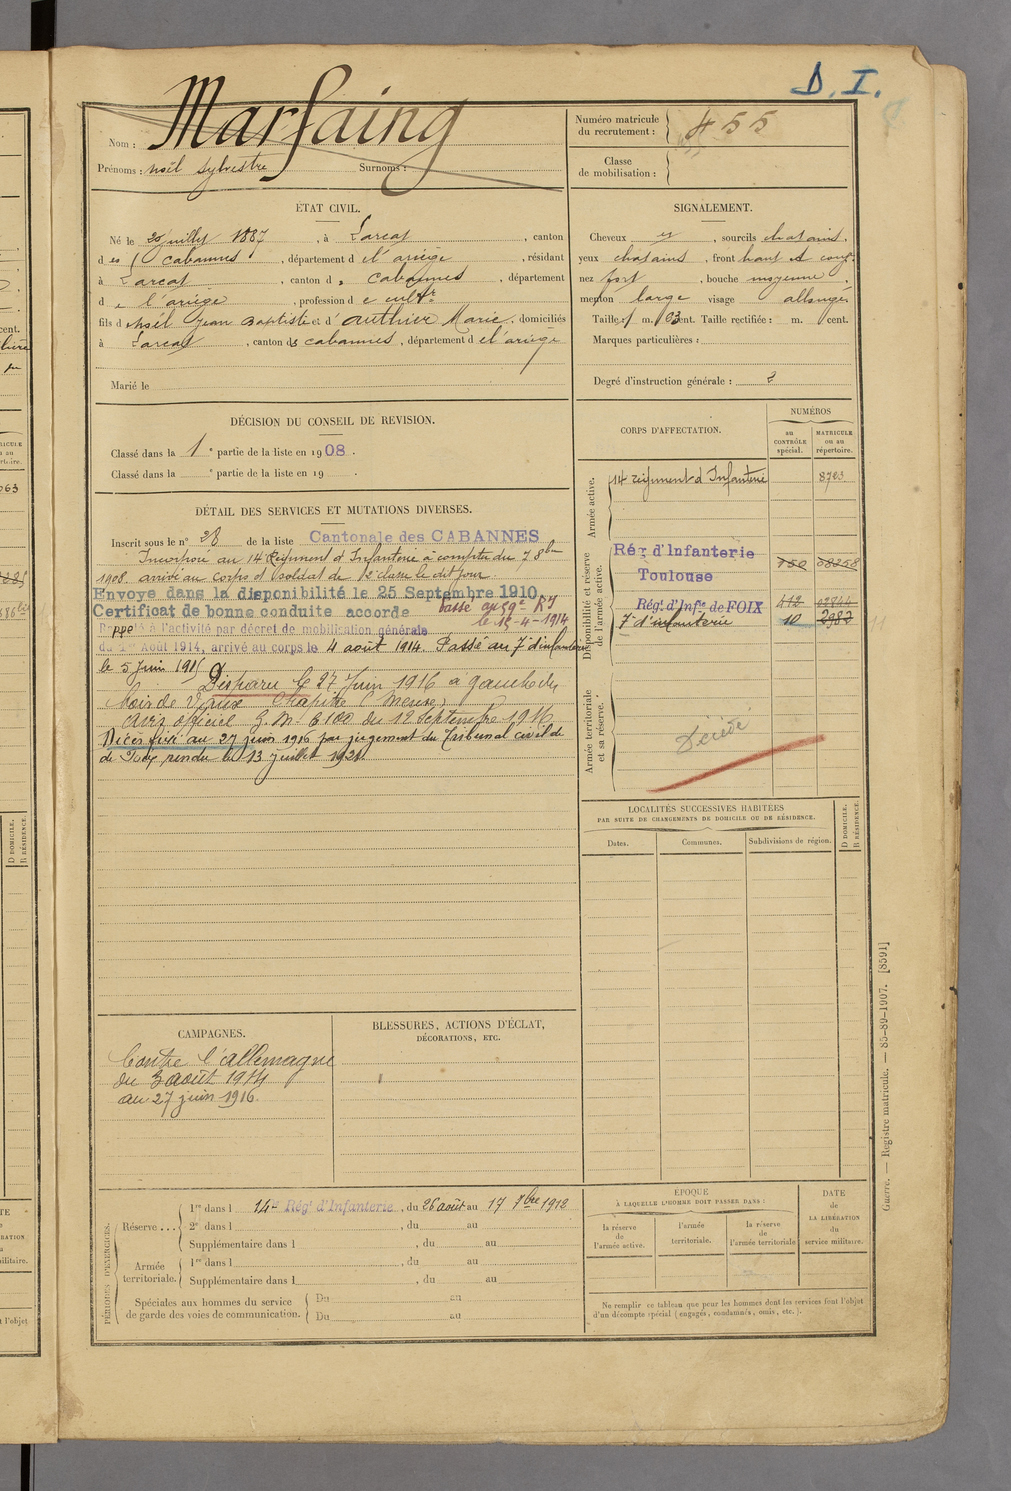 D. I.
Nom : Marfaing
Prénoms : Noël Sylvestre Surnoms :
Numéro matricule du recrutement : 455
Classe de mobilisation :
ÉTAT CIVIL.
Né le 25 juillet 1887, à Larcat, canton
des Cabannes, département de l'ariège, résidant
à Larcat, canton d Cabannes, département
de l'ariège, profession de cultr
fils de Noël Jean Baptiste et d'authier Marie, domiciliés
à Larcat, canton ds cabannes, département de l'ariège
Marié le
SIGNALEMENT.
Cheveux et, sourcils chatains,
yeux chatains, front haut et
nez fort, bouche moyenne,
menton large visage allongé
Taille : 1 m. cent. Taille rectifiée : m. cent.
Marques particulières :
Degré d'instruction générale : 2
DÉCISION DU CONSEIL DE REVISION.
Classé dans la 1e partie de la liste en 1908.
Classé dans la e partie de la liste en 19 .
CORPS D'AFFECTATION.
NUMÉROS
au CONTRÔLE spécial.
MATRICULE ou au répertoire.
Armée active.
14 régiment d'Infanterie 8723
Disponibilité et réserve de l'armée active.
Rég. d'Infanterie
Toulouse
Rég. d'Infie de FOIX 412
7e d'infanterie 10
Armée territoriale et sa réserve.
Décédé
DÉTAIL DES SERVICES ET MUTATIONS DIVERSES.
Inscrit sous le n° 28 de la liste Cantonale des CABANNES
Incorporé au 14 Régiment d'Infanterie à compter du 7 8bre
1908. arrivé au corps et soldat de 2e classe le dit jour.
Envoyé dans la disponibilité le 25 Septembre 1910.
Certificat de bonne conduite accordé
Passé au 59e RI
le 15-4-1914
Rappelé à l'activité par décret de mobilisation générale
du 1er Août 1914, arrivé au corps le 4 août 1914. Passé au 7e d'infanterie
le 5 Juin 1915
Disparu le 27 Juin 1916 à gauche du
bois de Vaux Chapitre (Meuse)
Avis officiel G. M. 6100 du 12 Septembre 1916
Décès fixé au 27 juin 1916 par jugement du Tribunal civil de
de Foix rendu le 13 juillet 1921.
LOCALITÉS SUCCESSIVES HABITÉES
PAR SUITE DE CHANGEMENTS DE DOMICILE OU DE RÉSIDENCE.
Dates.
Communes.
Subdivisions de région.
D DOMICILE.
R RÉSIDENCE.
CAMPAGNES.
Contre l'allemagne
du 3 août 1914
au 27 juin 1916.
BLESSURES, ACTIONS D'ÉCLAT,
DÉCORATIONS, ETC.
PÉRIODES D'EXERCICES.
Réserve ...
1re dans l 14e Rég. d'Infanterie, du 26 août au 17 7bre 1912
2e dans l , du au
Supplémentaire dans l , du au
Armée territoriale.
1re dans l , du au
Supplémentaire dans l , du au
Spéciales aux hommes du service
de garde des voies de communication.
Du au
Du au
ÉPOQUE
À LAQUELLE L'HOMME DOIT PASSER DANS :
la réserve de l'armée active.
l'armée territoriale.
la réserve de l'armée territoriale
DATE de LA LIBÉRATION du service militaire.
Ne remplir ce tableau que pour les hommes dont les services font l'objet
d'un décompte spécial (engagés, condamnés, omis, etc.).
Guerre. — Registre matricule. — 85-89-1907. [8591]